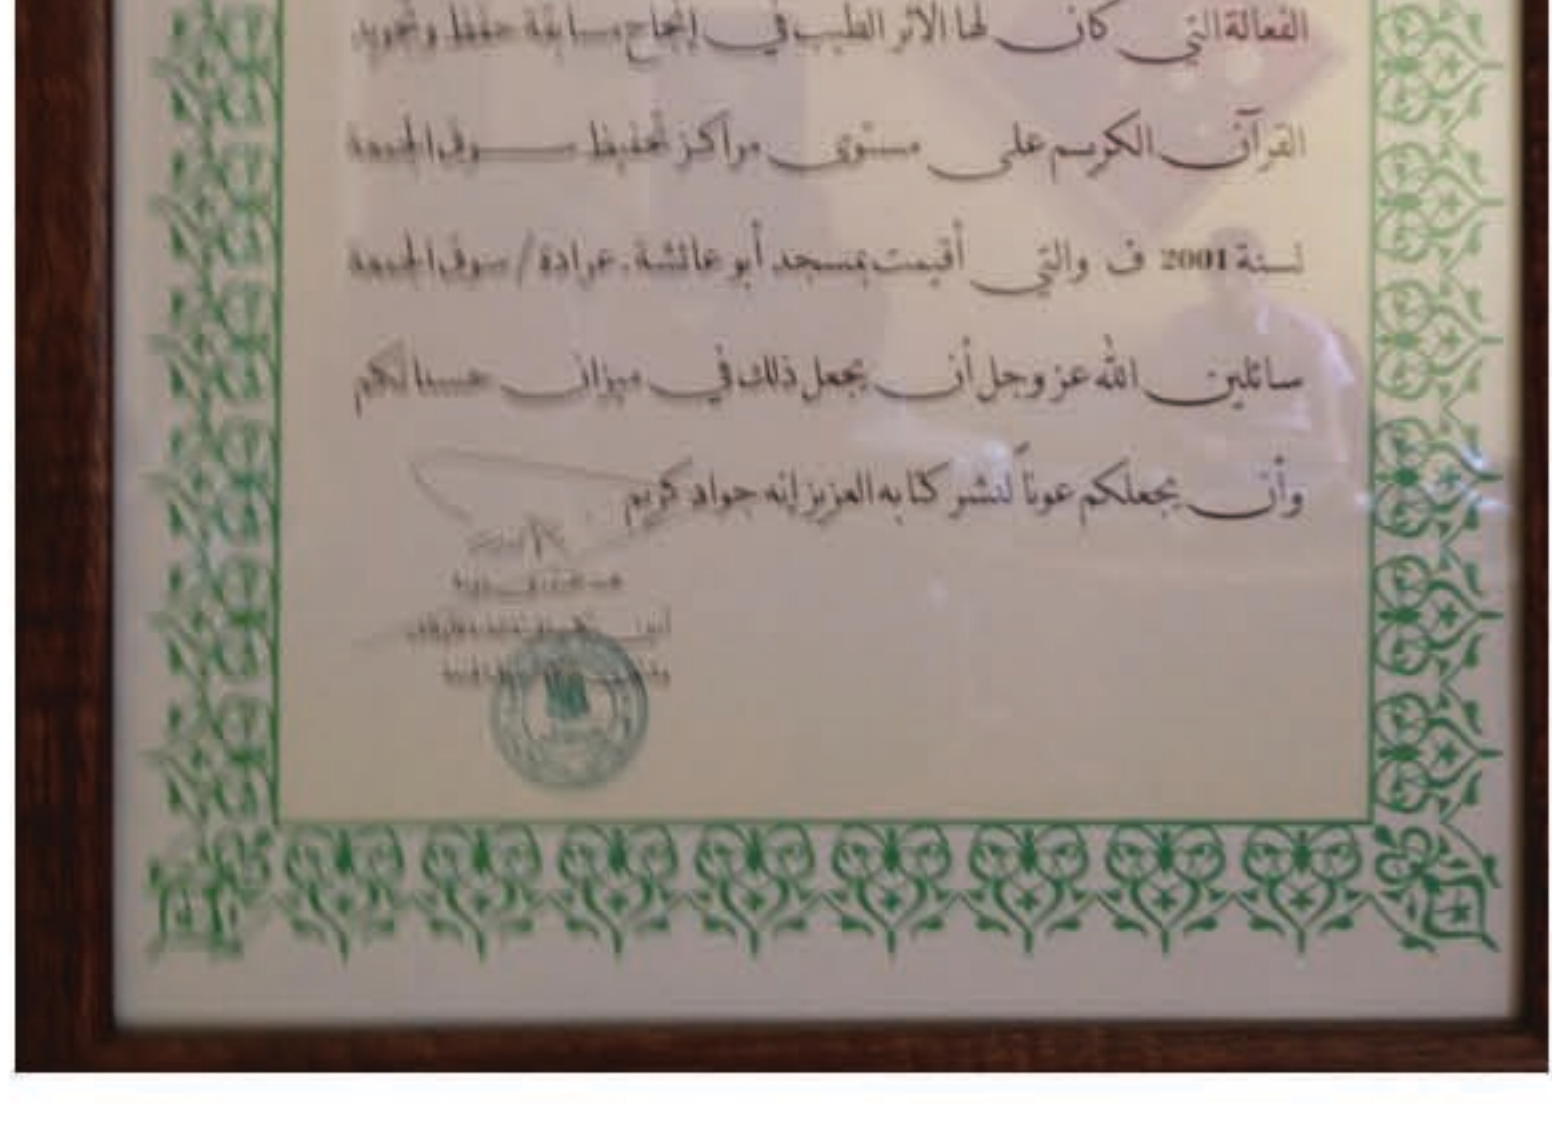 الفعالة التي كان لها الأثر الطيب في إنجاح مسابقة حفظ وتجويد
القرآن الكريم على مستوى مراكز تحفيظ سوق الجمعة
لسنة 2001 ف والتي أقيمت بمسجد أبو عائشة. عرادة / سوق الجمعة
سائلين الله عز وجل أن يجعل ذلك في ميزان حسناتكم
وأن يجعلكم عوناً لنشر كتابه العزيز إنه جواد كريم